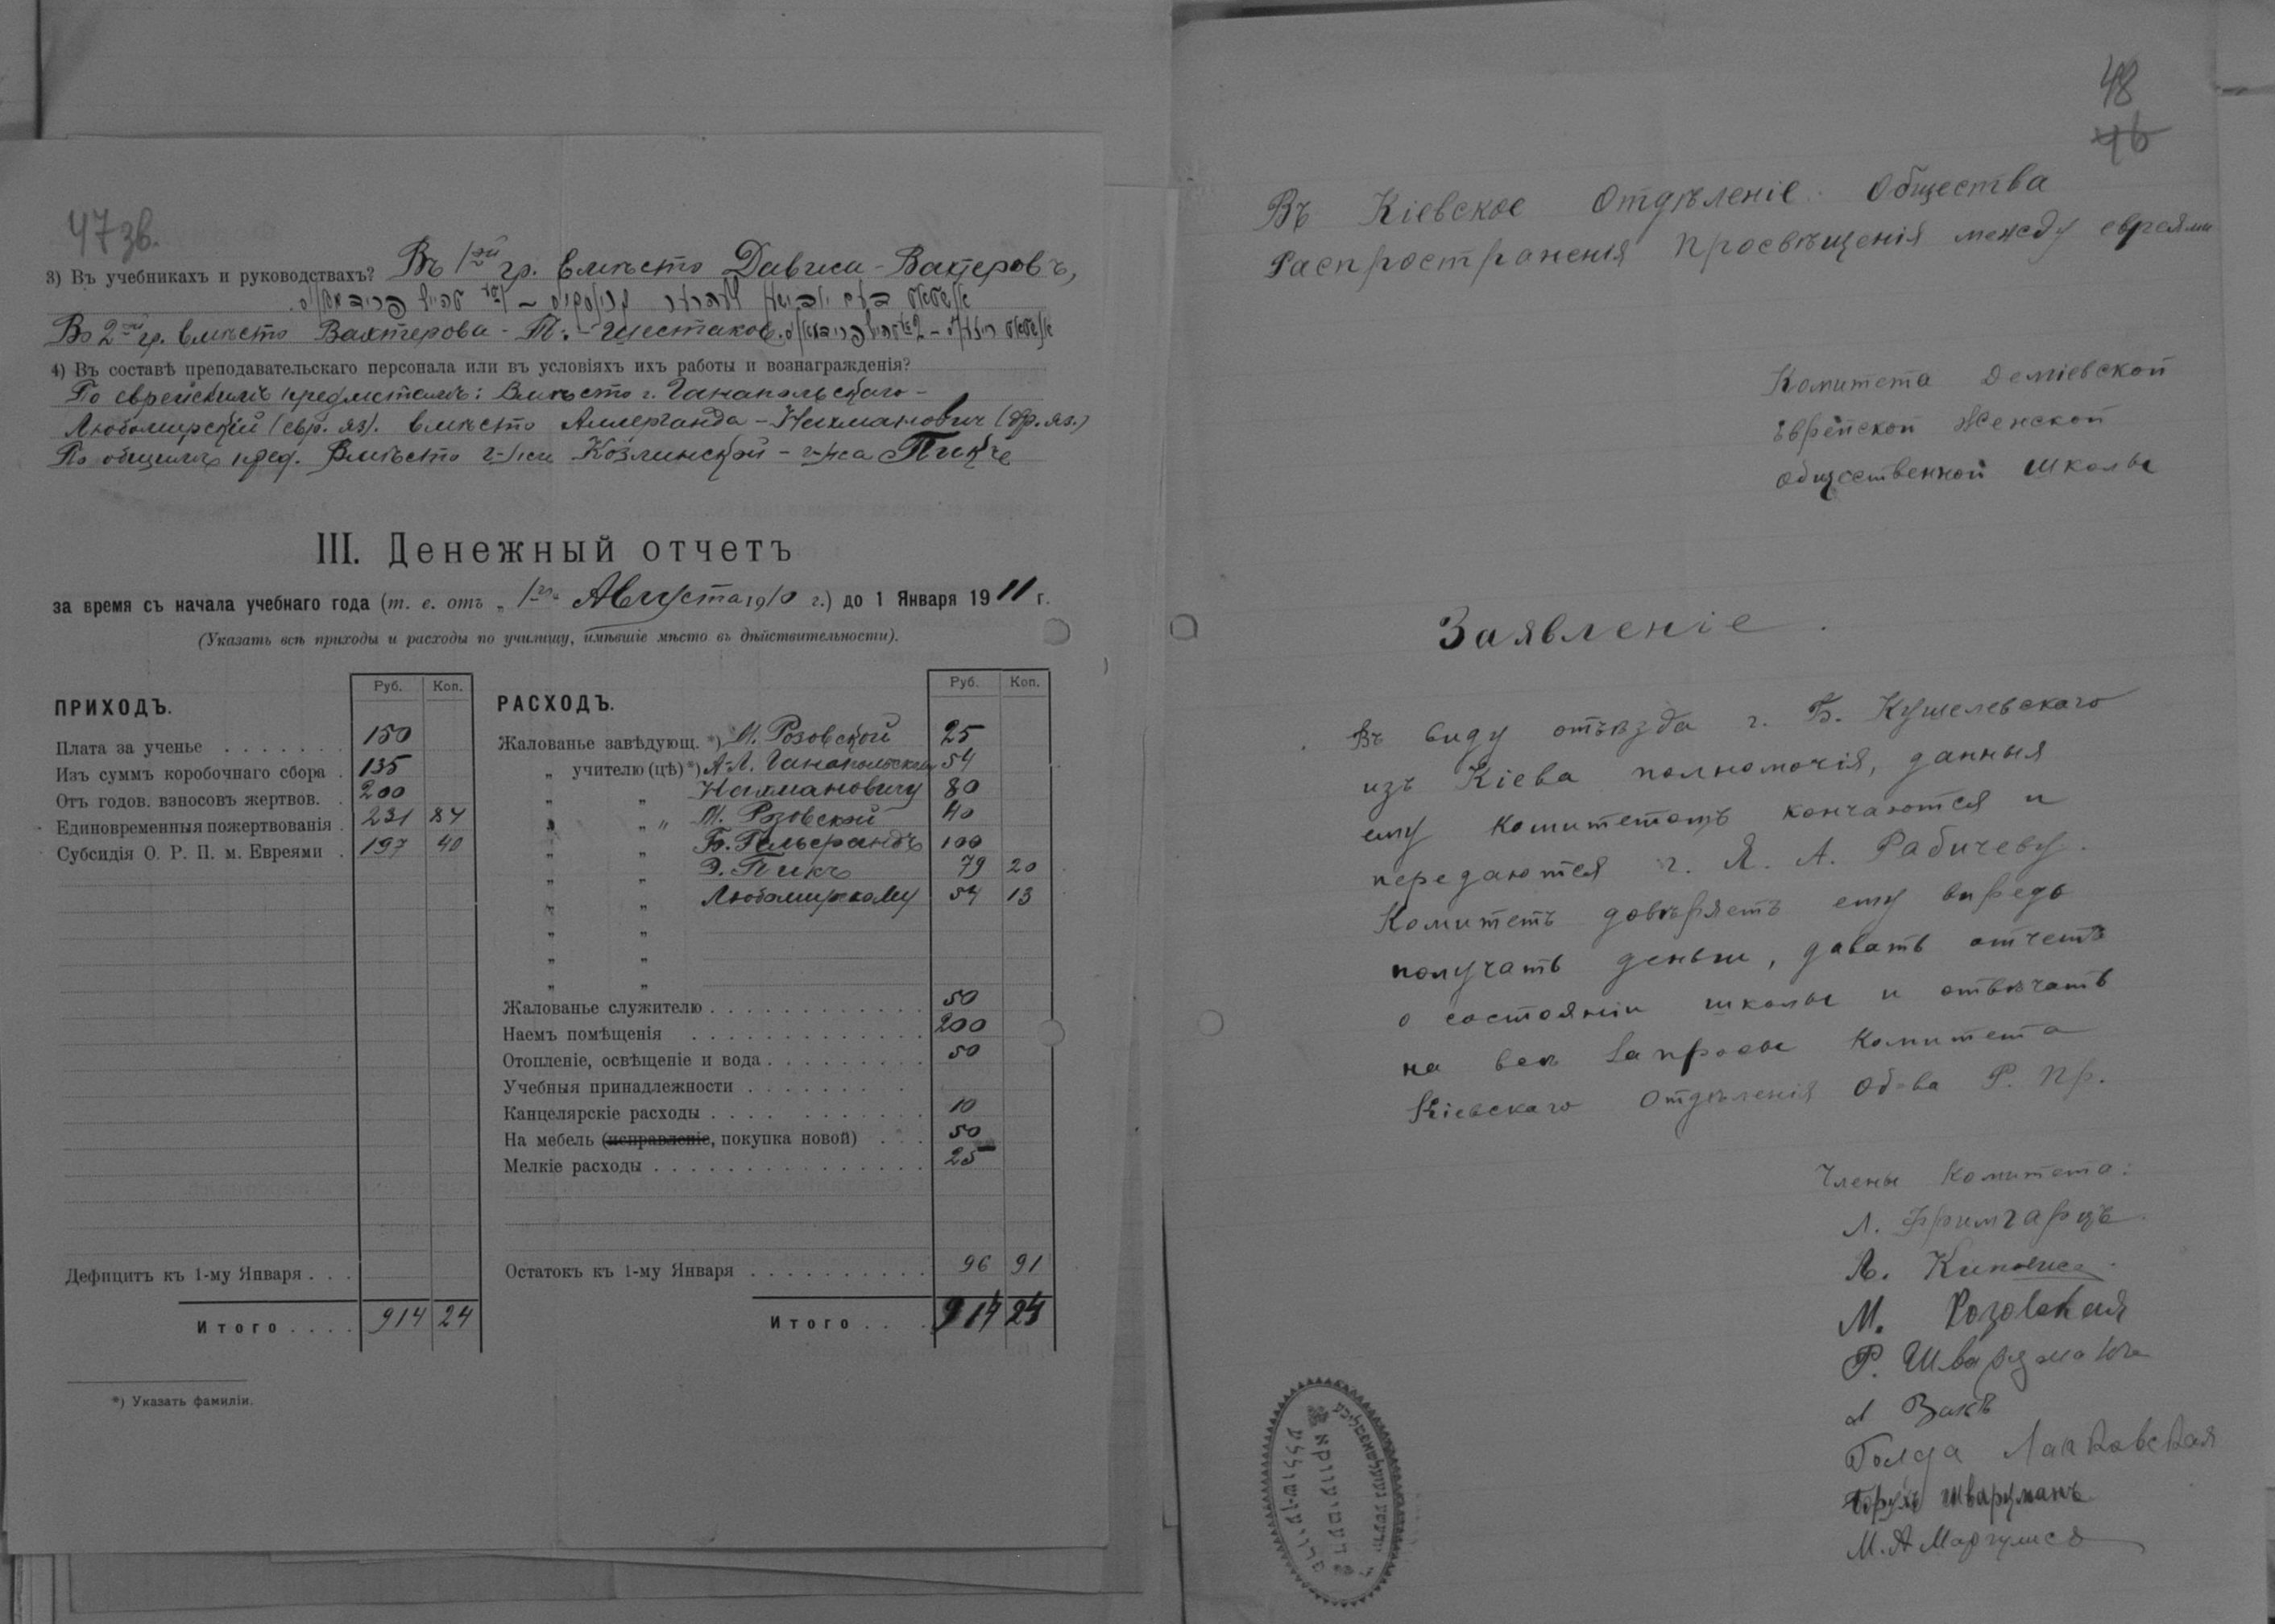 47 зв.
3) Въ учебникахъ и руководствахъ? Въ 1ой гр. вмѣсто Дависа - Вахтеровъ,
Во 2ой гр. вмѣсто Вахтерова - П. - Шестаковъ.
4) Въ составѣ преподавательскаго персонала или въ условіяхъ ихъ работы и вознагражденія?
По еврейскимъ предметамъ: Вмѣсто г. Ганапольскаго -
Любомирскій (евр. яз). вмѣсто - Нахманович (др. яз.)
По общимъ пред. Вмѣсто г-жи Козлинской - г-жа Пикъ
III. Денежный отчетъ
за время съ начала учебнаго года (т. е. отъ „ 1го Августа 1910 г.) до 1 Января 1911 г.
(Указать всѣ приходы и расходы по училищу, имѣвшіе мѣсто въ дѣйствительности).
ПРИХОДЪ. Руб. Коп.
Плата за ученье 150
Изъ суммъ коробочнаго сбора 135
Отъ годов. взносовъ жертвов. 200
Единовременныя пожертвованія 231 84
Субсидія О. Р. П. м. Евреями 197 40
Дефицитъ къ 1-му Января
Итого 914 24
РАСХОДЪ. Руб. Коп.
Жалованье завѣдующ. *) М. Розовской 25
„ учителю (цѣ) *) А-Л. Ганапольскому 54
„ „ Нахмановичу 80
„ „ „ М. Розовской 40
„ „ Б. 100
„ „ Э. Пикъ 79 20
„ „ Любомирскому 54 13
„ „
„ „
„ „
Жалованье служителю 50
Наемъ помѣщенія 200
Отопленіе, освѣщеніе и вода 50
Учебныя принадлежности
Канцелярскіе расходы 10
На мебель (исправленіе, покупка новой) 50
Мелкіе расходы 25
Остатокъ къ 1-му Января 96 91
Итого 914 24
*) Указать фамиліи.
48
46
Въ Кіевское Отдѣленіе Общества
Распространенія Просвѣщенія между евреями
Комитета Деміевской
Еврейской Женской
общественной школы
Заявленіе.
Въ виду отъѣзда г. Б. Кушелевскаго
изъ Кіева полномочія, данныя
ему Комитетомъ кончаются и
передаются г. Я. А. Рабичеву.
Комитетъ довѣряетъ ему впредь
получать деньги, давать отчетъ
о состояніи школы и отвѣчать
на всѣ запросы Комитета
Кіевскаго Отдѣленія Об-ва Р. Пр.
Члены Комитета:
Л. Фримгарцъ
Л. Кипнисъ
М. Розовская
Р. Шварцманъ
Л Закъ
Голда
Борухъ Шварцманъ
М. А Маргулисъ